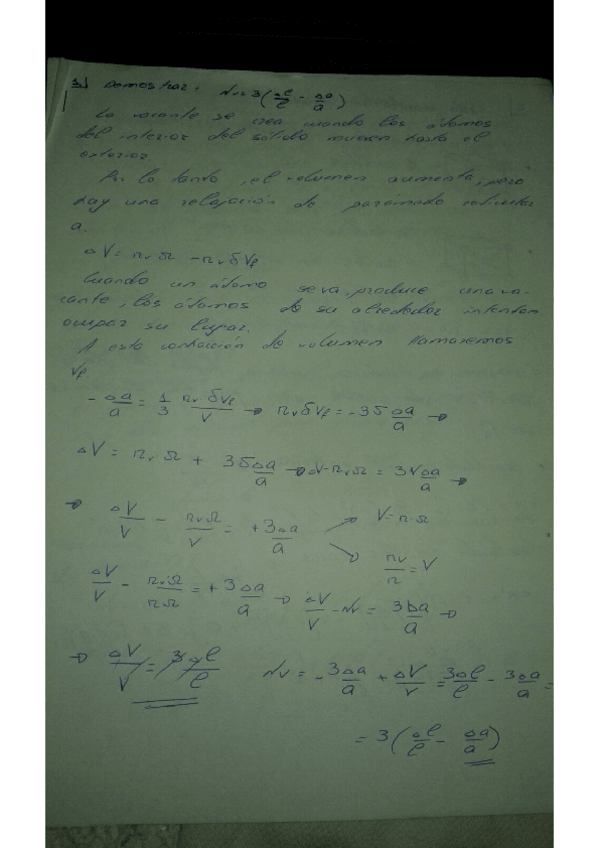 3) Demostrar: Nv = 3(Δl/l - Δa/a)
La vacante se crea cuando los átomos
del interior del sólido mueven hasta el
exterior
Por lo tanto, el volumen aumenta, pero
hay una relajación de parámetro reticular
a.
ΔV = nvΩ - nvδVf
Cuando un átomo se va, produce una va-
cante, los átomos de su alrededor intentan
ocupar su lugar.
A esta contracción de volumen llamaremos
Vf
- Δa/a = 1/3 nvδVf/V → nvδVf = -3V Δa/a →
ΔV = nvΩ + 3V Δa/a → ΔV - nvΩ = 3V Δa/a →
→ ΔV/V - nvΩ/V = +3Δa/a → V = n·Ω
→ nv/n = V
ΔV/V - nvΩ/nΩ = +3Δa/a → ΔV/V - Nv = 3Δa/a →
→ ΔV/V = 3Δl/l Nv = -3Δa/a + ΔV/V = 3Δl/l - 3Δa/a =
= 3(Δl/l - Δa/a)